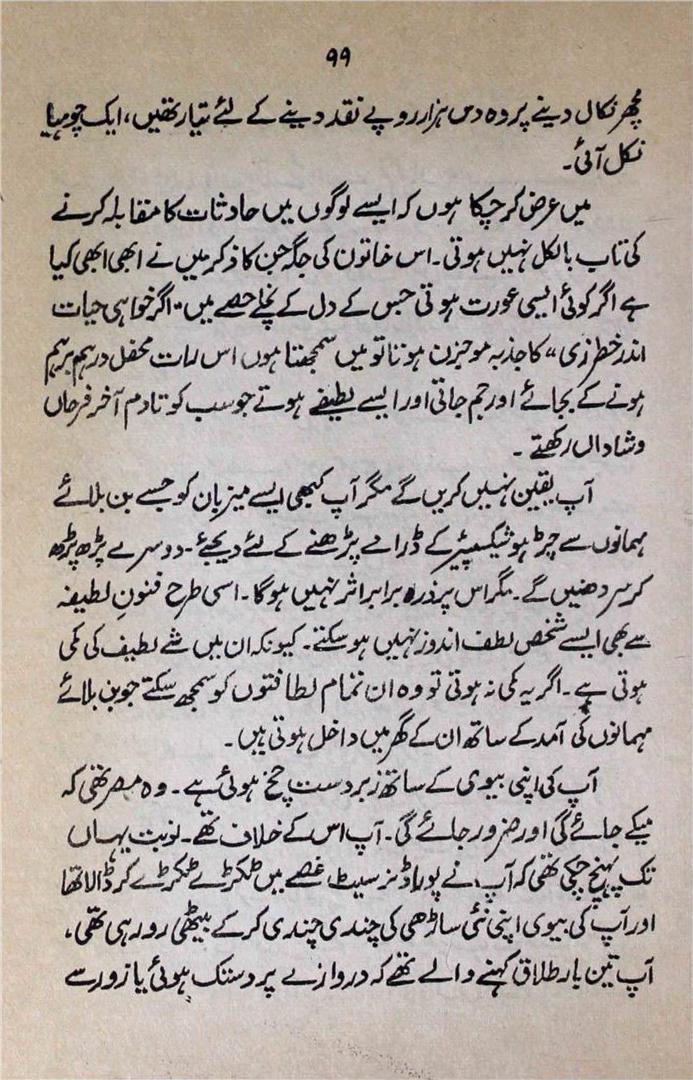 ۹۹
مچھر نکال دینے پر وہ دس ہزار روپے نقد دینے کے لئے تیار تھیں، ایک چوہیا
نکل آئی۔
میں عرض کر چکا ہوں کہ ایسے لوگوں میں حادثات کا مقابلہ کرنے
کی تاب بالکل نہیں ہوتی۔ اس خاتون کی جگہ جن کا ذکر میں نے ابھی ابھی کیا
ہے اگر کوئی ایسی عورت ہوتی جس کے دل کے نچلے حصے میں "اگر خواہی حیات
اندر خطر زی" کا جذبہ موجزن ہوتا تو میں سمجھتا ہوں اس رات محفل درہم برہم
ہونے کے بجائے اور جم جاتی اور ایسے لطیفے ہوتے جو سب کو تادم آخر فرحاں
و شاداں رکھتے۔
آپ یقین نہیں کریں گے مگر آپ کبھی ایسے میزبان کو جسے بن بلائے
مہمانوں سے چڑ ہو شیکسپیئر کے ڈرامے پڑھنے کے لئے دیجئے۔ دوسرے پڑھ پڑھ
کر سر دھنیں گے۔ مگر اس پر ذرہ برابر اثر نہیں ہوگا۔ اسی طرح فنونِ لطیفہ
سے بھی ایسے شخص لطف اندوز نہیں ہو سکتے۔ کیونکہ ان میں شے لطیف کی کمی
ہوتی ہے۔ اگر یہ کمی نہ ہوتی تو وہ ان تمام لطافتوں کو سمجھ سکتے جو بن بلائے
مہمانوں کی آمد کے ساتھ ان کے گھر میں داخل ہوتی ہیں۔
آپ کی اپنی بیوی کے ساتھ زبردست چخ ہوئی ہے۔ وہ مصر تھی کہ
میکے جائے گی اور ضرور جائے گی۔ آپ اس کے خلاف تھے۔ نوبت یہاں
تک پہنچ چکی تھی کہ آپ نے پورا ڈنر سیٹ غصے میں ٹکڑے ٹکڑے کر ڈالا تھا
اور آپ کی بیوی اپنی نئی ساڑھی کی چندی چندی کر کے بیٹھی رو رہی تھی،
آپ تین بار طلاق کہنے والے تھے کہ دروازے پر دستک ہوئی یا زور سے